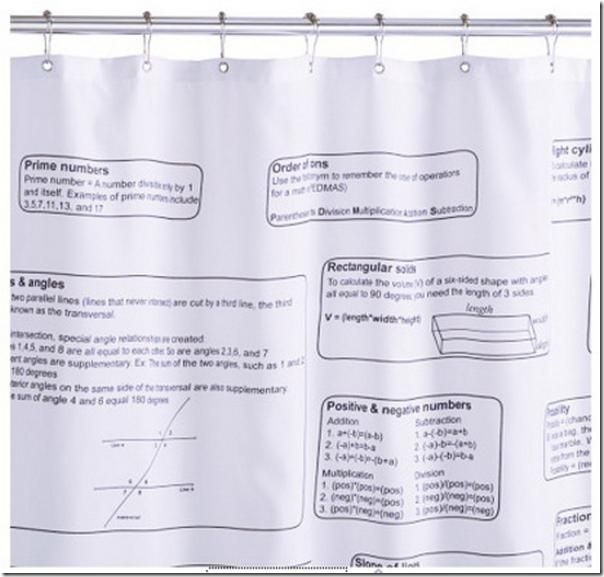 Prime numbers
Prime number = A number divisible by 1
and itself. Examples of prime numbers include
3,5,7,11,13, and 17
Order of ons
Use the to remember the of operations
for a
Parentheses Division Multiplication Addition Subtraction
ight cyli
calculate
radius of
s & angles
two parallel lines (lines that never intersect) are cut by a third line, the third
known as the transversal.
ntersection, special angle relationships are created:
s 1,4,5, and 8 are all equal to each other. So are angles 2,3,6, and 7
ent angles are supplementary. Ex: The sum of the two angles, such as 1 and 2
180 degrees
terior angles on the same side of the transversal are also supplementary.
e sum of angle 4 and 6 equal 180 degrees
1 2
Line
3 4
5 6
7 8
Line
transversal
Rectangular solids
To calculate the volume (V) of a six-sided shape with angle
all equal to 90 degrees you need the length of 3 sides
V = (length*width*height)
length
width
Positive & negative numbers
Addition
1. a+(-b)=(a-b)
2. (-a)+b=b-a
3. (-a)+(-b)=-(b+a)
Subtraction
1. a-(-b)=a+b
2. (-a)-b=-(a+b)
3. (-a)-(-b)=b-a
Multiplication
1. (pos)*(pos)=(pos)
2. (neg)*(neg)=(pos)
3. (pos)*(neg)=(neg)
Division
1. (pos)/(pos)=(pos)
2. (neg)/(neg)=(pos)
3. (pos)/(neg)=(neg)
Fraction
Fraction =
Addition &
Slope of